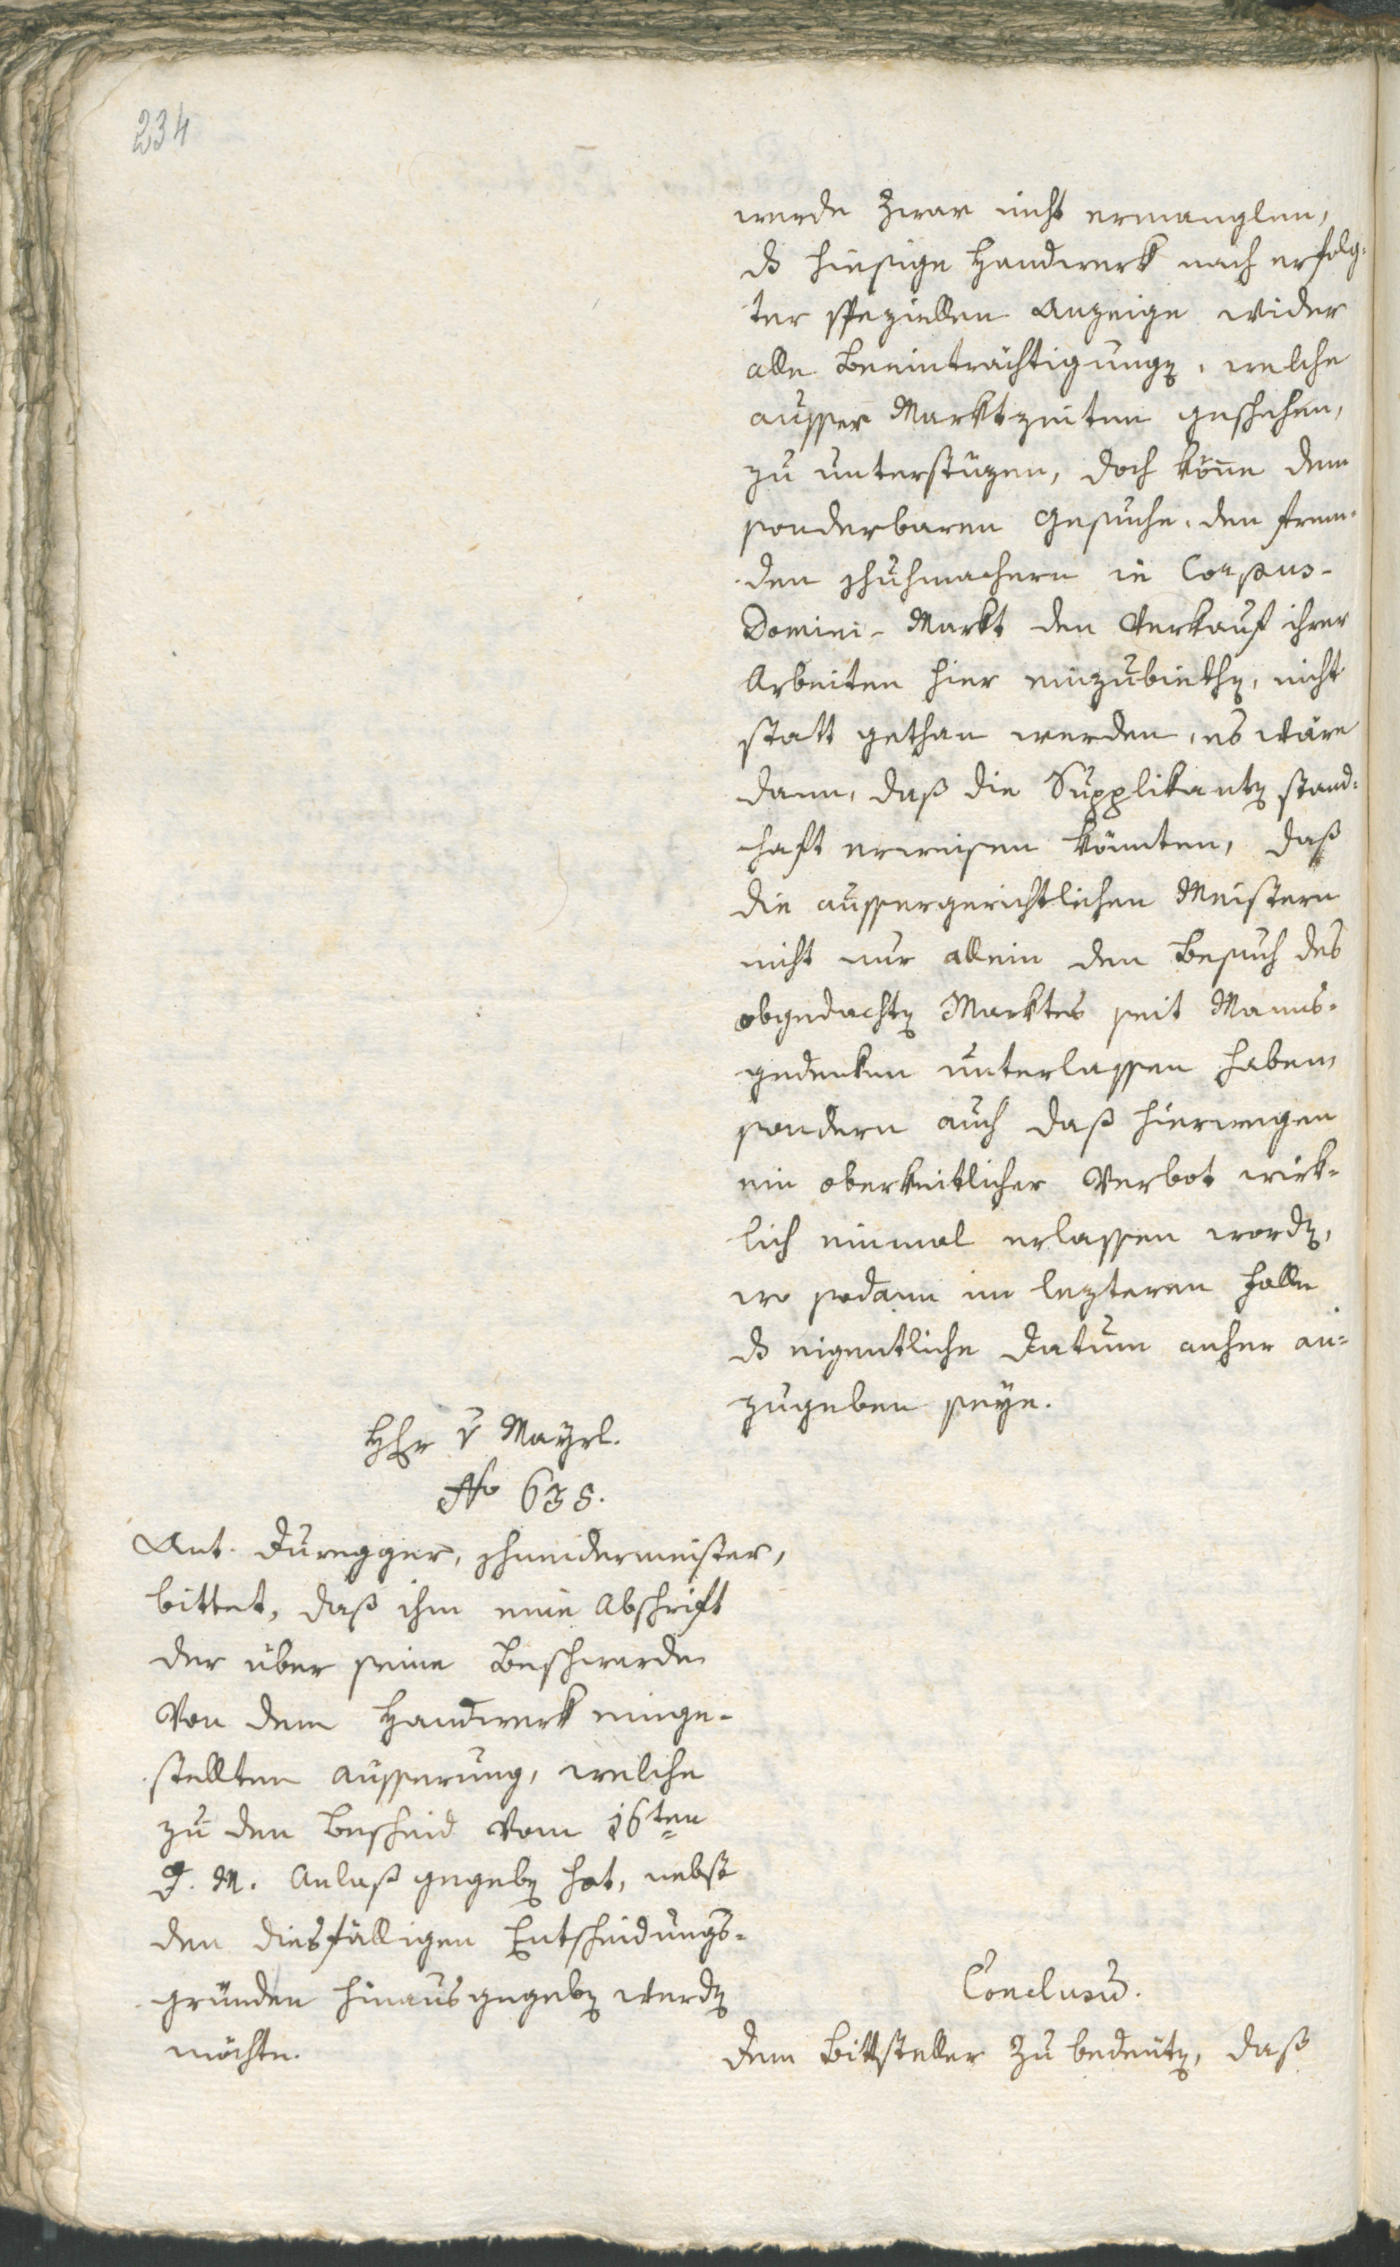 234
werde zwar nicht ermanglen,
ds hiesige Handwerk nach erfolg-
ter speziellen Anzeige wider
alle Beeinträchtigungen, welche
ausser Marktzeiten geschehen,
zu unterstüzen, doch könne dem
sonderbaren Gesuche, den frem-
den Schuhmachern in Corpus-
Domini-Markt den Verkauf ihrer
Arbeiten hier einzubiethen, nicht
statt gethan werden, es wäre
dann, daß die Supplikanten stand-
haft erweisen könnten, daß
die aussergerichtlichen Meistern
nicht nur allein den Besuch des
obgedachten Marktes seit Manns-
gedenken unterlassen haben,
sondern auch daß hierwegen
ein oberkeitlicher Verbot wirk-
lich einmal erlassen worden,
wo sodann im lezteren Falle
ds eigentliche Datum anher an-
zugeben seye.
Hr v Mayrl.
No 638.
Ant. Duregger, Schneidermeister,
bittet, daß ihm eine Abschrift
der über seine Beschwerde
von dem Handwerk einge-
stellten Äusserung, welche
zu den Bescheid vom 16ten
d. M. Anlaß gegeben hat, nebst
den diesfälligen Entscheidungs-
gründen hinausgegeben werden
möchte.
Conclusum.
Dem Bittsteller zu bedeuten, daß